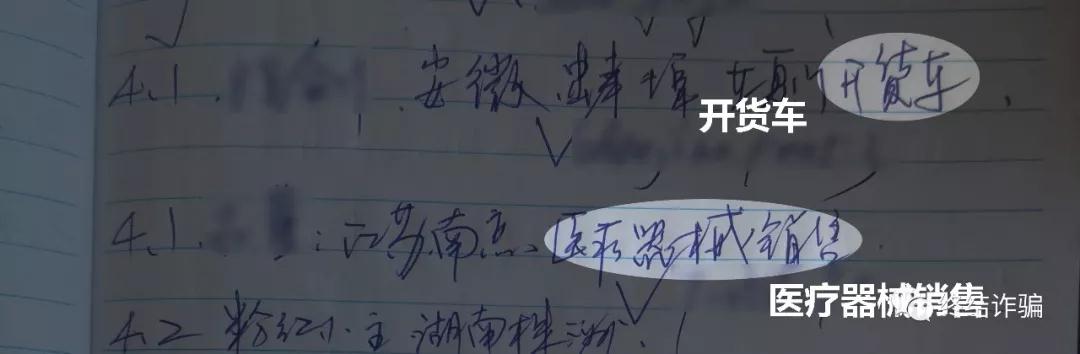 4.1. 安徽蚌埠 开货车
开货车
4.1. : 江苏南京、医疗器械销售
医疗器械销售
终结诈骗
4.2 粉红小主 湖南株洲